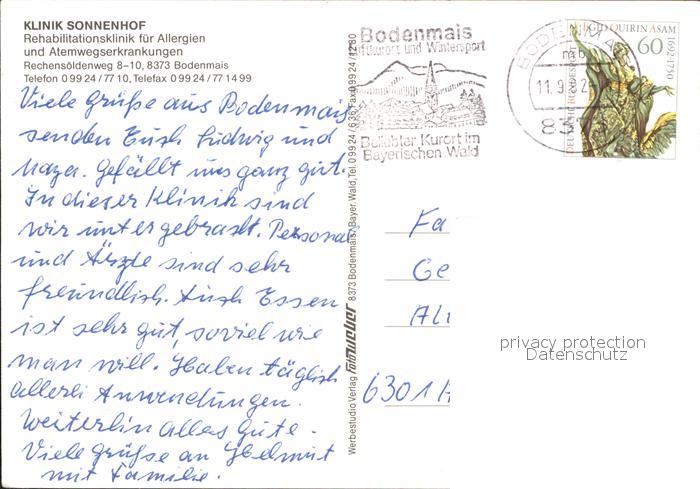 KLINIK SONNENHOF
Rehabilitationsklinik für Allergien
und Atemwegserkrankungen
Rechensöldenweg 8–10, 8373 Bodenmais
Telefon 0 99 24 / 77 10, Telefax 0 99 24 / 77 14 99
Viele Grüße aus Bodenmais
senden Euch Ludwig und
. Gefällt uns ganz gut.
In dieser Klinik sind
wir untergebracht. Personal
und Ärzte sind sehr
freundlich. Auch Essen
ist sehr gut, soviel wie
man will. Haben täglich
allerlei Anwendungen.
Weiterhin alles Gute.
Viele Grüße an Helmut
mit Familie.
Werbestudio Verlag 8373 Bodenmais / Bayer. Wald, Tel. 0 99 24 /
Bodenmais
Luftkurort und Wintersport
Beliebter Kurort im
Bayerischen Wald
BODENMAIS
mb
11.9.
EGID QUIRIN ASAM
1692-1750
60
DEUTSCHE BUNDESPOST
Fa
Ge
6301 H
privacy protection
Datenschutz